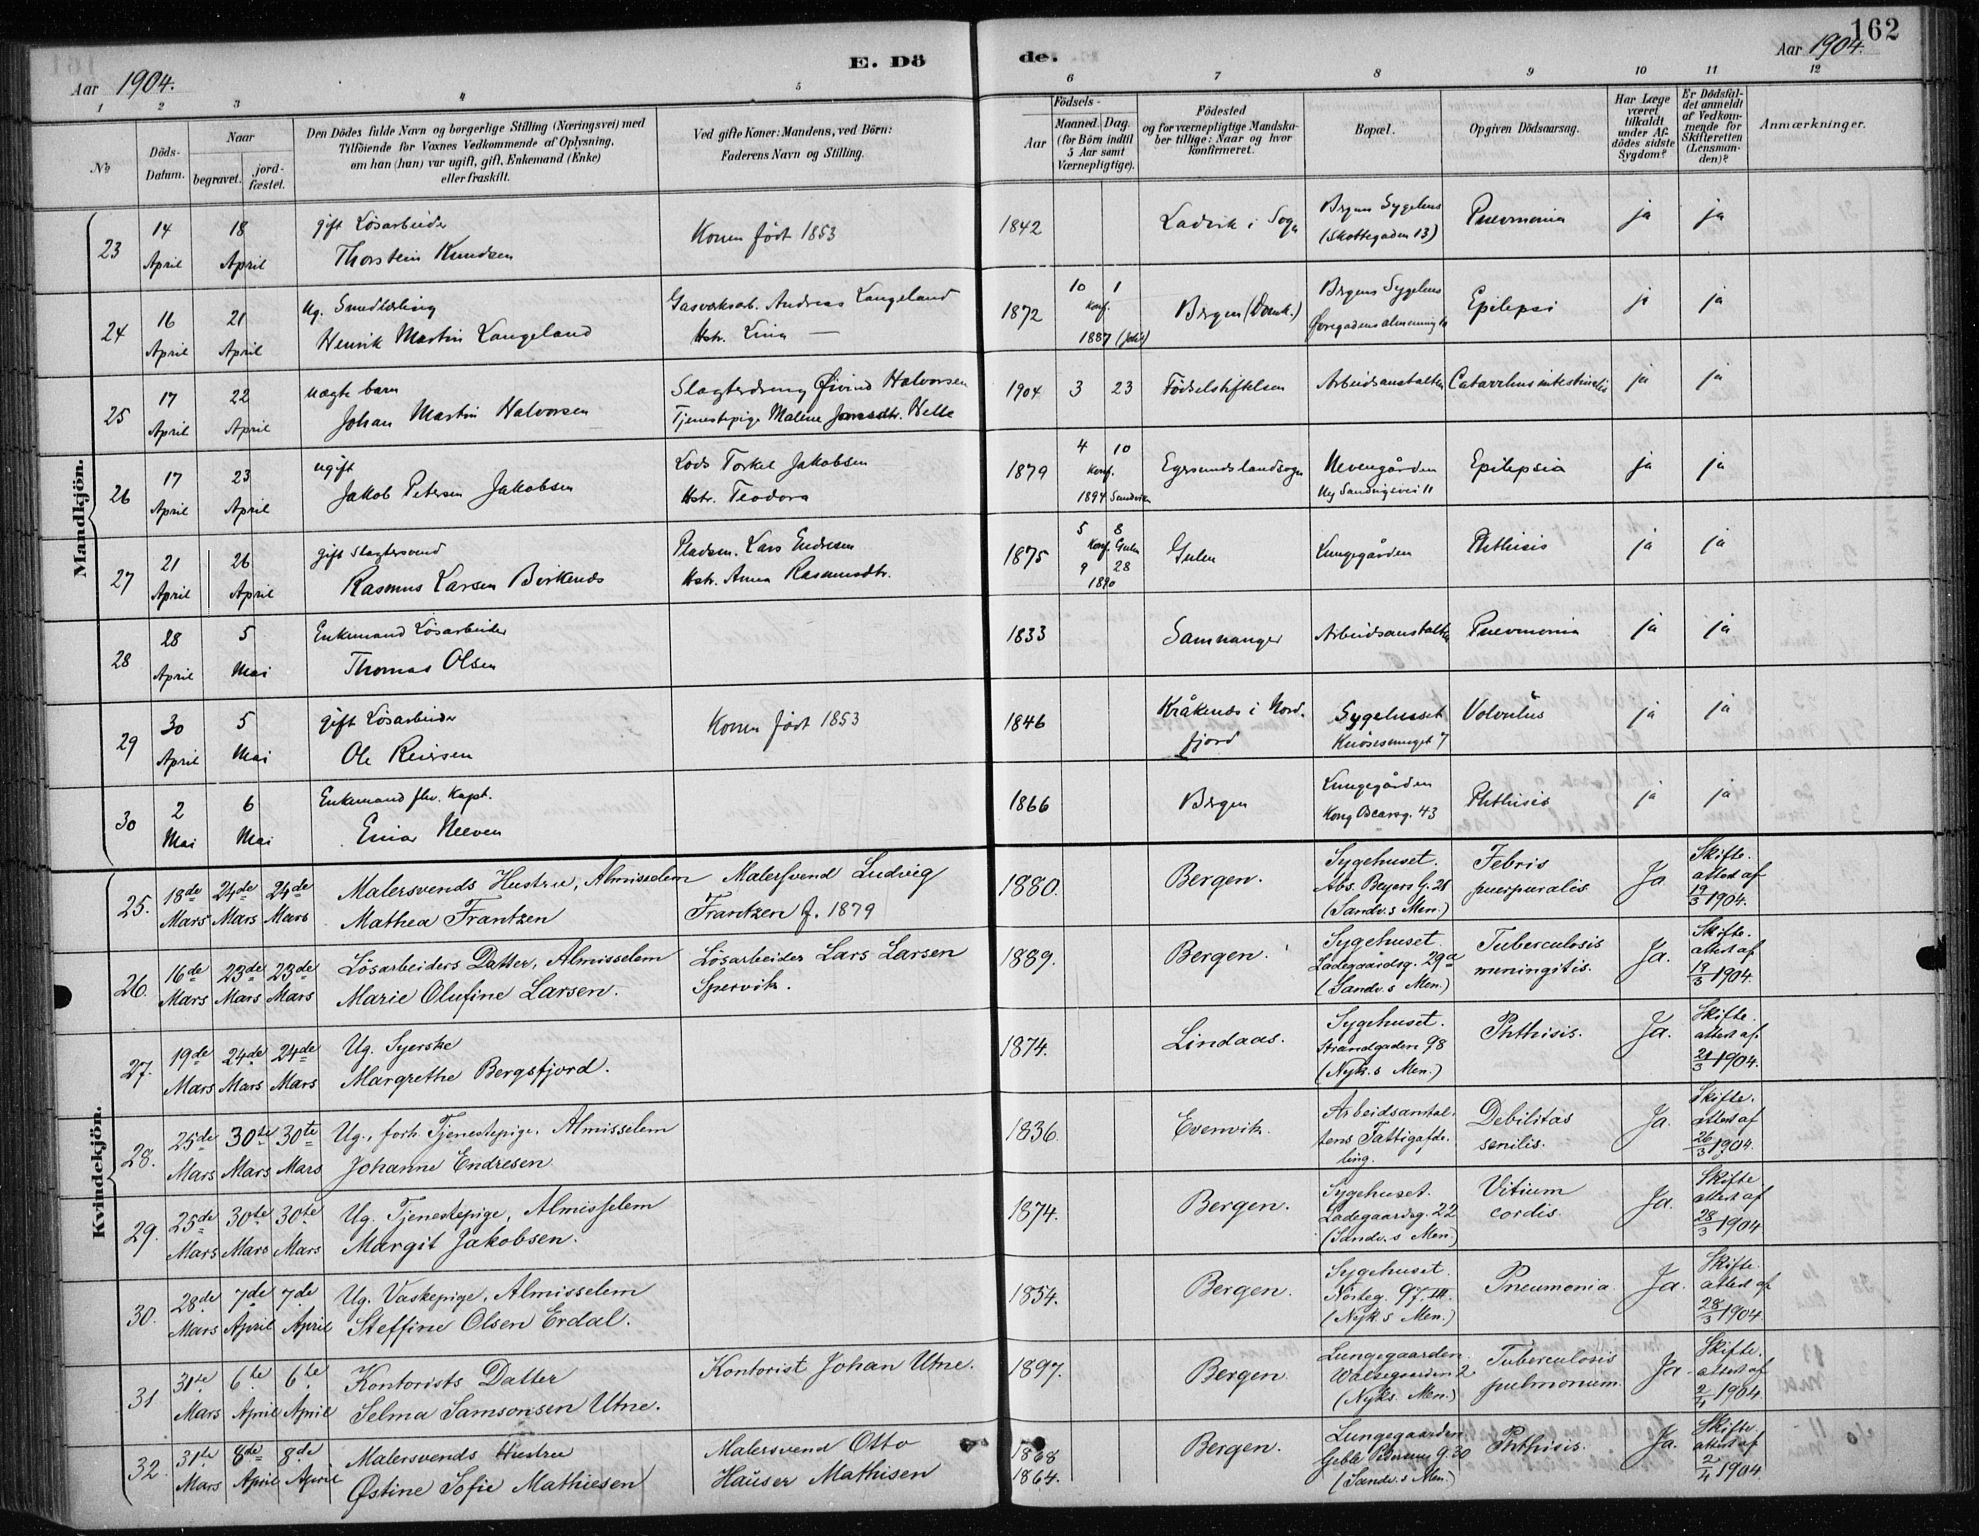 162
Aar 1904.
E. Dö
de.
Aar 1904.
1 2 3 4 5 6 7 8 9 10 11 12
№
Döds-Datum.
Naar
begravet.
jord-fæstet.
Den Dödes fulde Navn og borgerlige Stilling (Næringsvei) med
Tilföiende for Voxnes Vedkommende af Oplysning,
om han (hun) var ugift, gift, Enkemand (Enke)
eller fraskilt.
Ved gifte Koner: Mandens, ved Börn:
Faderens Navn og Stilling.
Födsels-
Aar
Maaned. Dag.
(for Börn indtil
5 Aar samt
Værnepligtige).
Födested
og for værnepligtige Mandska-
ber tillige: Naar og hvor
konfirmeret.
Bopæl.
Opgiven Dödsaarsag.
Har Læge
været
tilkaldt
under Af-
dödes sidste
Sygdom?
Er Dödsfal-
det anmeldt
af Vedkom-
mende for
Skifteretten
(Lensman-
den)?
Anmærkninger.
Mandkjön.
23 14 April 18 April gift Løsarbeider Thorstein Knudsen Konen født 1853 1842 Ladvik i Sogn Bergens Sygehus (Skottegaden 13) Pneumonia ja ja
24 16 April 21 April ug. Smedlærling Henrik Martin Langeland Gasværksarb. Andreas Langeland Hstr. Lina — 1872 10 1 Konf. 1887 Bergen (Domk.) Bergens Sygehus Øvregadens almenning Epilepsi ja ja
25 17 April 22 April uægte barn Johan Martin Halvorsen Slagterdreng Øivind Halvorsen Tjenestepige Malene Jonsdtr. Helle 1904 3 23 Fødselstiftelsen Arbeidsanstalten Catarrhus intestinalis ja ja
26 17 April 23 April ugift Jakob Petersen Jakobsen Lods Torkel Jakobsen Hstr. Teodora 1879 4 10 Konf. 1894 Sandviken Egersunds landsogn Nevengården Ny Sandvigsvei 11 Epilepsia ja ja
27 21 April 26 April gift Slagtersvend Rasmus Larsen Birkenes Pladsm. Lars Endresen Hstr. Anna Rasmusdtr. 1875 5 8 Konf. Gulen 9 28 1890 Gulen Lungegården Phthisis ja ja
28 28 April 5 Mai Enkemand Løsarbeider Thomas Olsen 1833 Samnanger Arbeidsanstalten Pneumonia ja ja
29 30 April 5 Mai gift Løsarbeider Ole Reiersen Konen født 1853 1846 Kråkenes i Nordfjord Sygehuset Knøsesmuget 7 Volvulus ja ja
30 2 Mai 6 Mai Enkemand fhv. Kapt. Einar Neeven 1866 Bergen Lungegården Kong Oscarsg. 43 Phthisis ja ja
Kvindekjön.
25. 18de Mars 24de Mars 24de Mars Malersvends Hustru, Almisselem Mathea Frantzen Malersvend Ludvig Frantzen f. 1879 1880. Bergen. Sygehuset. Abs. Beyers G. 28 (Sandv.s Men.) Febris puerpuralis Ja Skifte. attest af 19/3 1904.
26. 16de Mars 23de Mars 23de Mars Løsarbeiders Datter, Almisselem Marie Olufine Larsen. Løsarbeider Lars Larsen Spervik. 1889. Bergen. Sygehuset. Ladegaardsg. 29a (Sandv.s Men.) Tuberculosis meningitis. Ja. Skifte. attest af 19/3 1904.
27. 19de Mars 24de Mars 24de Mars Ug. Syerske Margrethe Bergsfjord. 1874. Lindaas. Sygehuset. Strandgaden 98 (Nyk.s Men.) Phthisis. Ja. Skifte. attest af 21/3 1904.
28. 25de Mars 30te Mars 30te Mars Ug., forh. Tjenestepige, Almisselem Johanne Endresen 1836. Evenvik. Arbeidsanstaltens Fattigafdeling. Debilitas senilis. Ja. Skifte. attest af 26/3 1904.
29. 25de Mars 30te Mars 30te Mars Ug. Tjenestepige, Almisselem Margit Jakobsen. 1874. Bergen. Sygehuset. Ladegaardsg. 22 (Sandv.s Men.) Vitium cordis. Ja. Skifte attest af 28/3 1904
30. 28de Mars 7de April 7de April Ug. Vaskepige, Almisselem Steffine Olsen Erdal. 1854. Bergen. Sygehuset. Nørteg. 97 III. (Nyk.s Men.) Pneumonia. Ja. Skifte attest af 28/3 1904
31 31te Mars 6te April 6te April Kontorists Datter Selma Samsonsen Utne. Kontorist Johan Utne. 1897. Bergen. Lungegaarden. Walsegaarden 2 (Nyks. Men.) Tuberculosis pulmonum. Ja. Skifte. attest af 2/4 1904.
32. 31te Mars 8de April 8de April Malersvends Hustru Østine Sofie Mathiesen Malersvend Otto Hauser Mathisen 1868 1864. Bergen. Lungegaarden Geble Pedersens g 30 (Sandv.s Men.) Phthisis. Ja. Skifte. attest af 2/4 1904